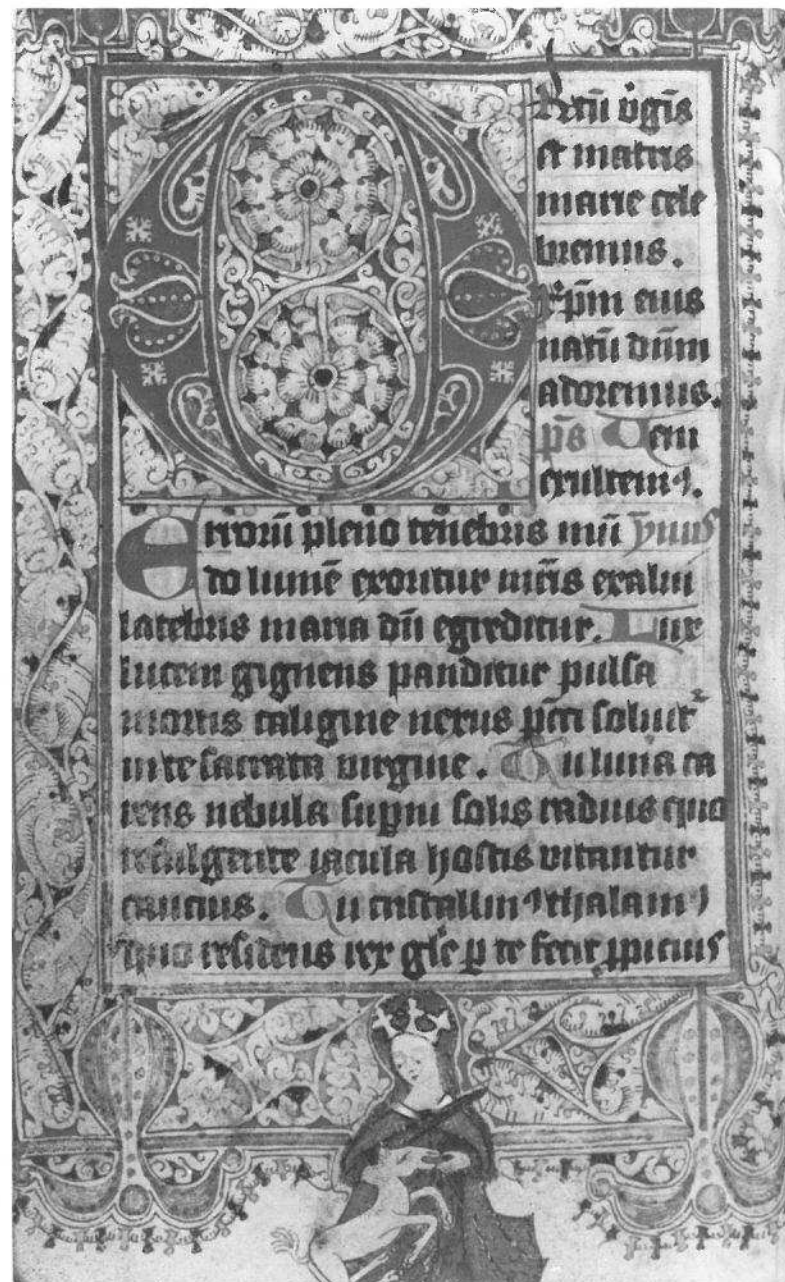 Ortū v̊gīs
et matris
marie cele
bremus.
xp̄m eius
natū dūm
adoremus.
p̄s Veni
exultemꝰ.
Errorū pleno tenebris mūi ymnꝰ
do lumē exoritur mr̄is exalui
latebris maria dūi egreditur. Lux
lucem gignens panditur pulsa
mortis caligine nexus pcc̄i soluit᷑
in te sacrata virgine. Tu luna ca
rens nebula sup̄ni solis radiis quo
refulgente iacula hostis vitantur
caucius. Tu cristallinꝰ thalamꝰ
quo residens rex gl̄e ꝑ te fecit ꝓpicius